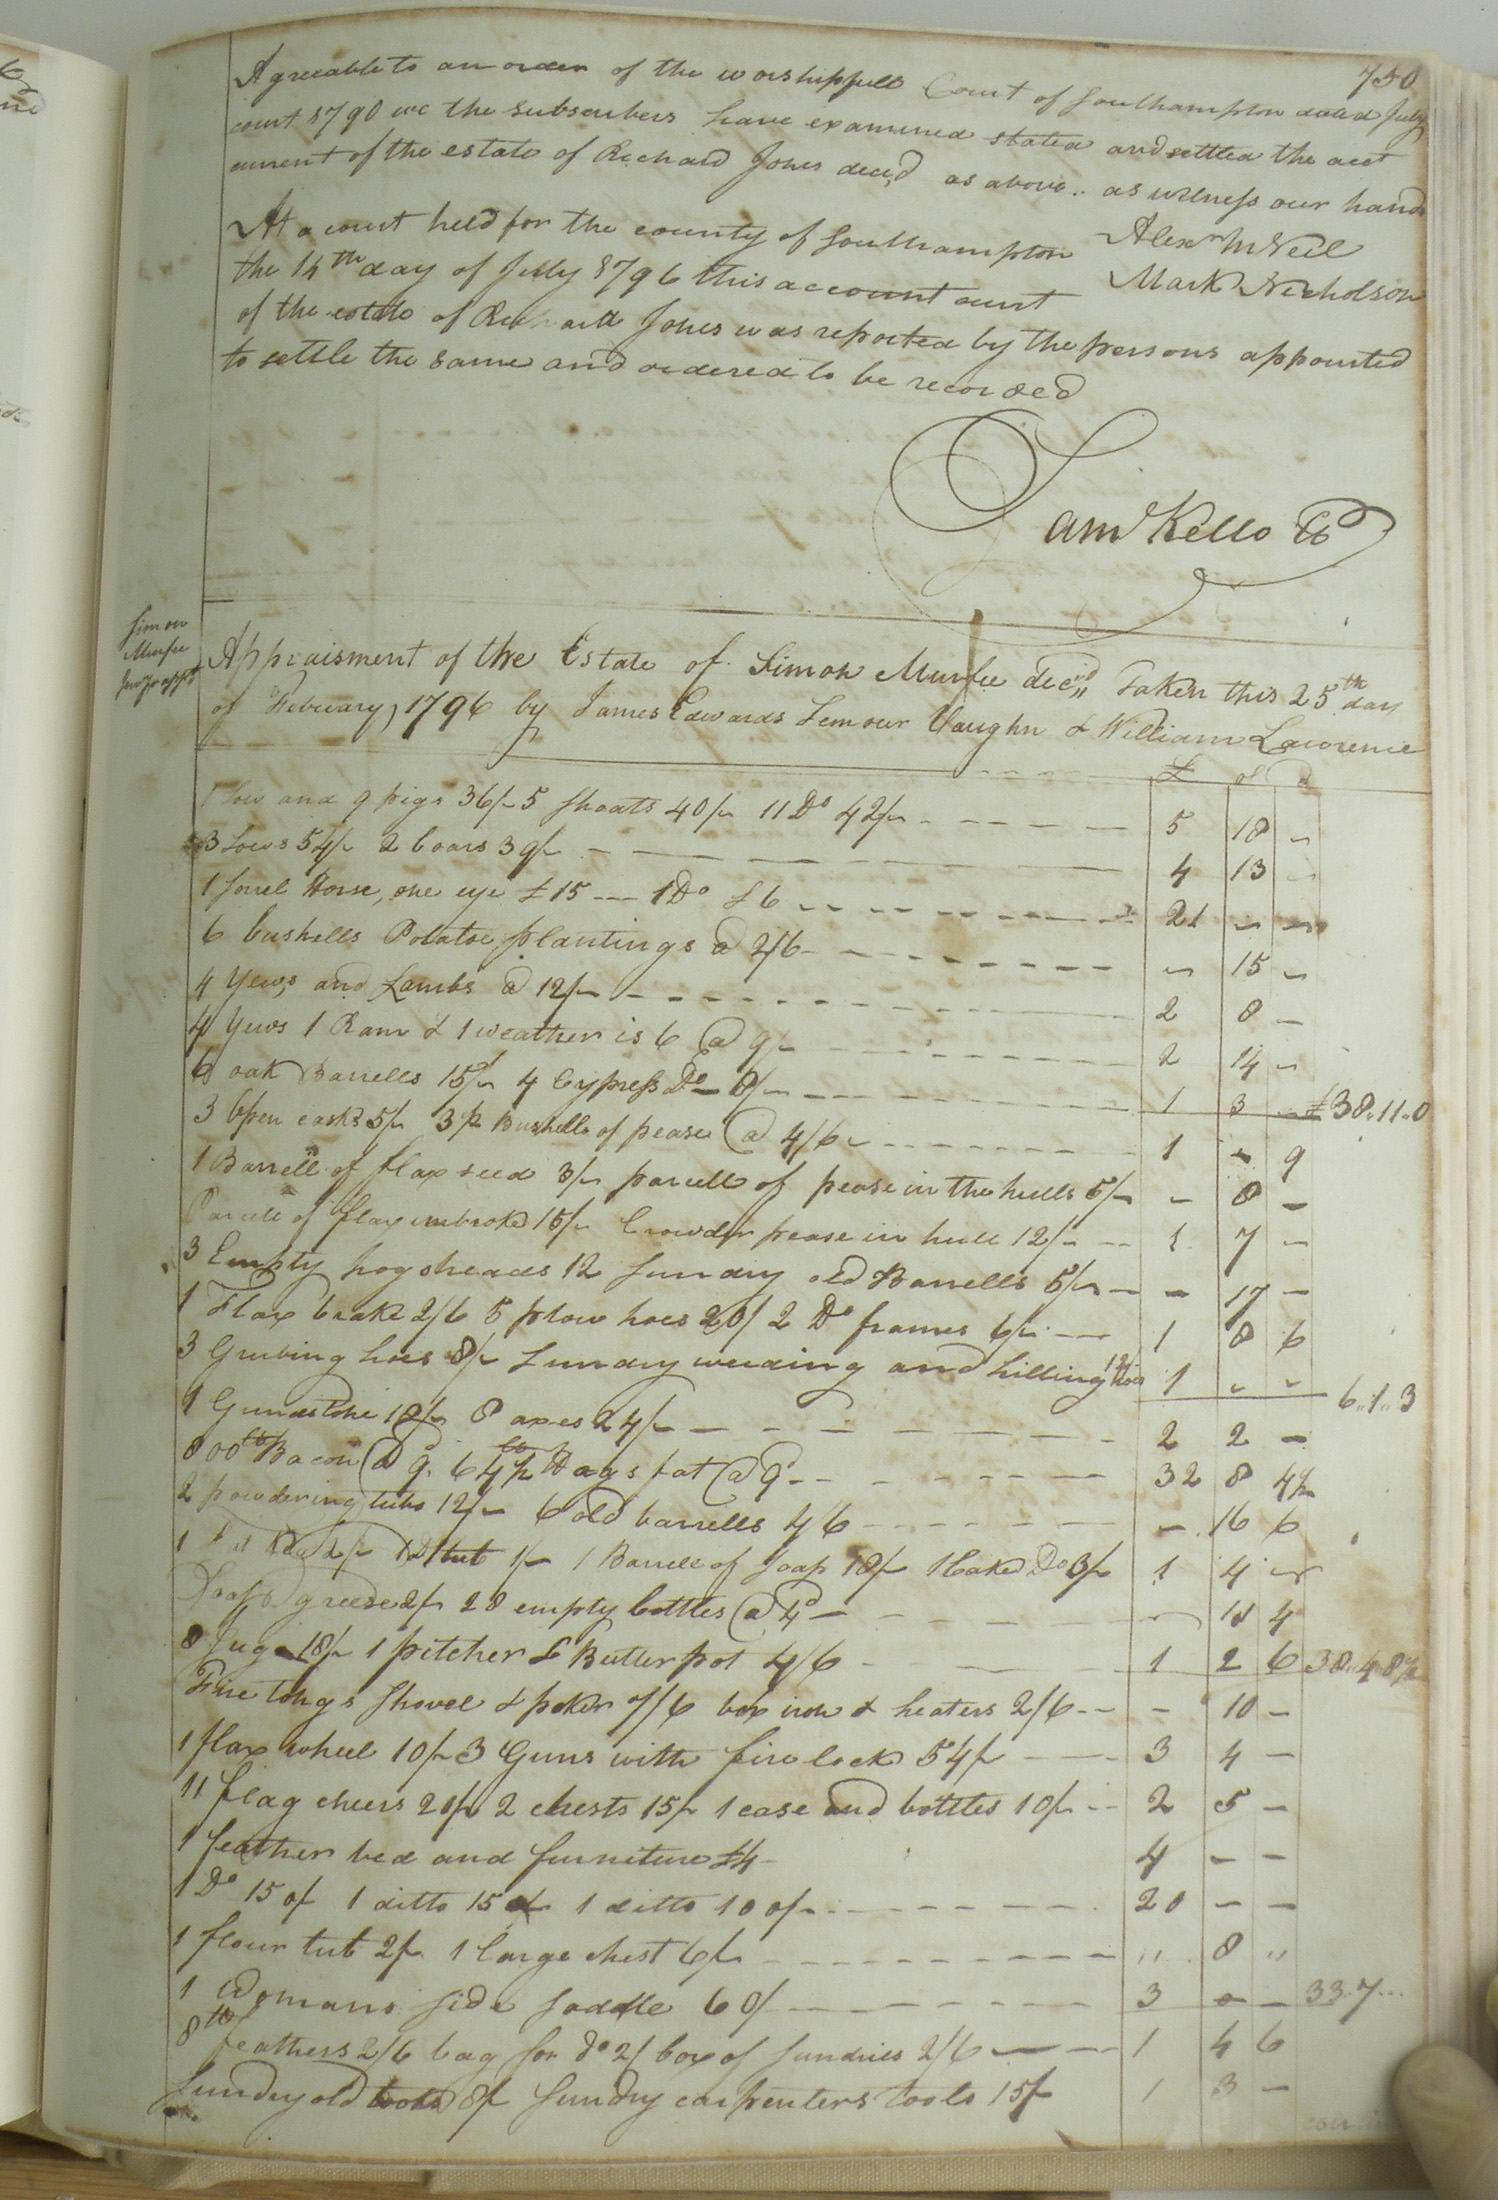 750
Agreeable to an order of the worshipfull Court of Southampton dated July
court 1790 we the subscribers have examined stated and settled the acct
current of the estate of Richard Jones decd as above .. as witness our hands
Alexr McNeil
Mark Nicholson
At a court held for the county of Southampton
the 14th day of July 1796 this account curt
of the estate of Richard Jones was reported by the persons appointed
to settle the same and ordered to be recorded
Saml Kello CC
Simon
Murfee
Appraisment of the Estate of Simon Murfee decd Taken this 25th day
of February, 1796 by James Edwards Semour Vaughn & William Lawrence
£ s d
1 Sow and 9 pigs 36/- 5 Shoats 40/- 11 Do 42/- 5 18 -
3 Sows 54/- 2 boars 39/- 4 13 -
1 Sorrel Horse, one eye £15 --- 1 Do £6 21 - -
6 bushells Potatoe plantings @ 2/6 - 15 -
4 Yews and Lambs @ 12/- 2 8 -
4 Yews 1 Ram & 1 weather is 6 @ 9/- 2 14 -
6 oak Barrells 15/- 4 Cypress Do 8/- 1 3 - £38..11..0
3 Open casks 5/- 3½ Bushells of pease @ 4/6 1 - 9
1 Barrell of flax seed 3/- parcell of pease in the hulls 5/- - 8 -
Parcell of flax unbroke 15/- Crowder pease in hull 12/- 1 7 -
3 Empty hogsheads 12 Sundry old Barrells 5/- - 17 -
1 Flax brake 2/6 5 plow hoes 20/ 2 Do frames 6/- 1 8 6
3 Grubing hoes 8/- Sundry weeding and hilling hoes 12/- 1 - - 6..1..3
1 Grindstone 18/- 8 axes 24/- 2 2 -
800lb Bacon @ 9d 64½lb Hags fat @ 9d 32 8 4½
2 powdering tubs 12/- 6 old barrells 4/6 - 16 6
1 2/- 1 Do tub 1/- 1 Barrell of Soap 18/- 1 Caked Do 3/- 1 4 -
Soap greese 2/- 28 empty bottles @ 4d - 11 4
8 Jugs 18/- 1 pitcher & Butter pot 4/6 1 2 6 38..4..8½
Fire tongs Shovel & poker 7/6 box iron & heaters 2/6 - 10 -
1 flax wheel 10/- 3 Guns with fire lock 54/- 3 4 -
11 flag cheers 20/- 2 chests 15/- 1 case and bottles 10/- 2 5 -
1 feather bed and furniture £4 4 - -
1 Do 150/ 1 ditto 150/- 1 ditto 100/- 20 - -
1 flour tub 2/- 1 large chest 6/- " 8 "
1 Womans side saddle 60/ 3 - - 33..7...
8lb feathers 2/6 bag for do 2/ box of sundries 2/6 1 4 6
Sundry old books 8/ Sundry carpenters tools 15/- 1 3 -